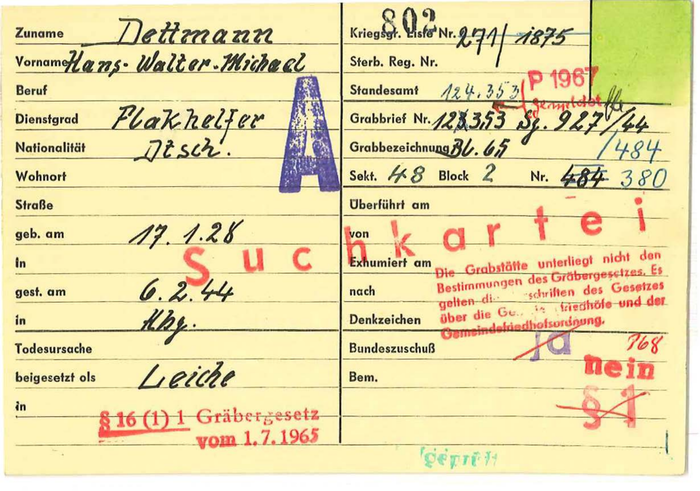 Zuname Dettmann
Vorname Hans-Walter-Michael
Beruf
Dienstgrad Flakhelfer
Nationalität Dtsch.
Wohnort
Straße
geb. am 17.1.28
in
gest. am 6.2.44
in Hbg.
Todesursache
beigesetzt als Leiche
in
§ 16 (1) 1 Gräbergesetz
vom 1.7.1965
A
Suchkartei
802
Kriegsgr. Liste Nr. 271/1875
Sterb. Reg. Nr.
P 1967
Standesamt 124.353
gemeldet
Grabbrief Nr. 123353 Jg. 927/44
Grabbezeichnung Bl. 65 /484
Sekt. 48 Block 2 Nr. 484 380
Überführt am
von
Exhumiert am
nach
Denkzeichen
Die Grabstätte unterliegt nicht den
Bestimmungen des Gräbergesetzes. Es
gelten die schriften des Gesetzes
über die friedhöfe und der
Gemeindefriedhofsordnung.
Bundeszuschuß ja
768
nein
Bem.
§ 1
geprüft